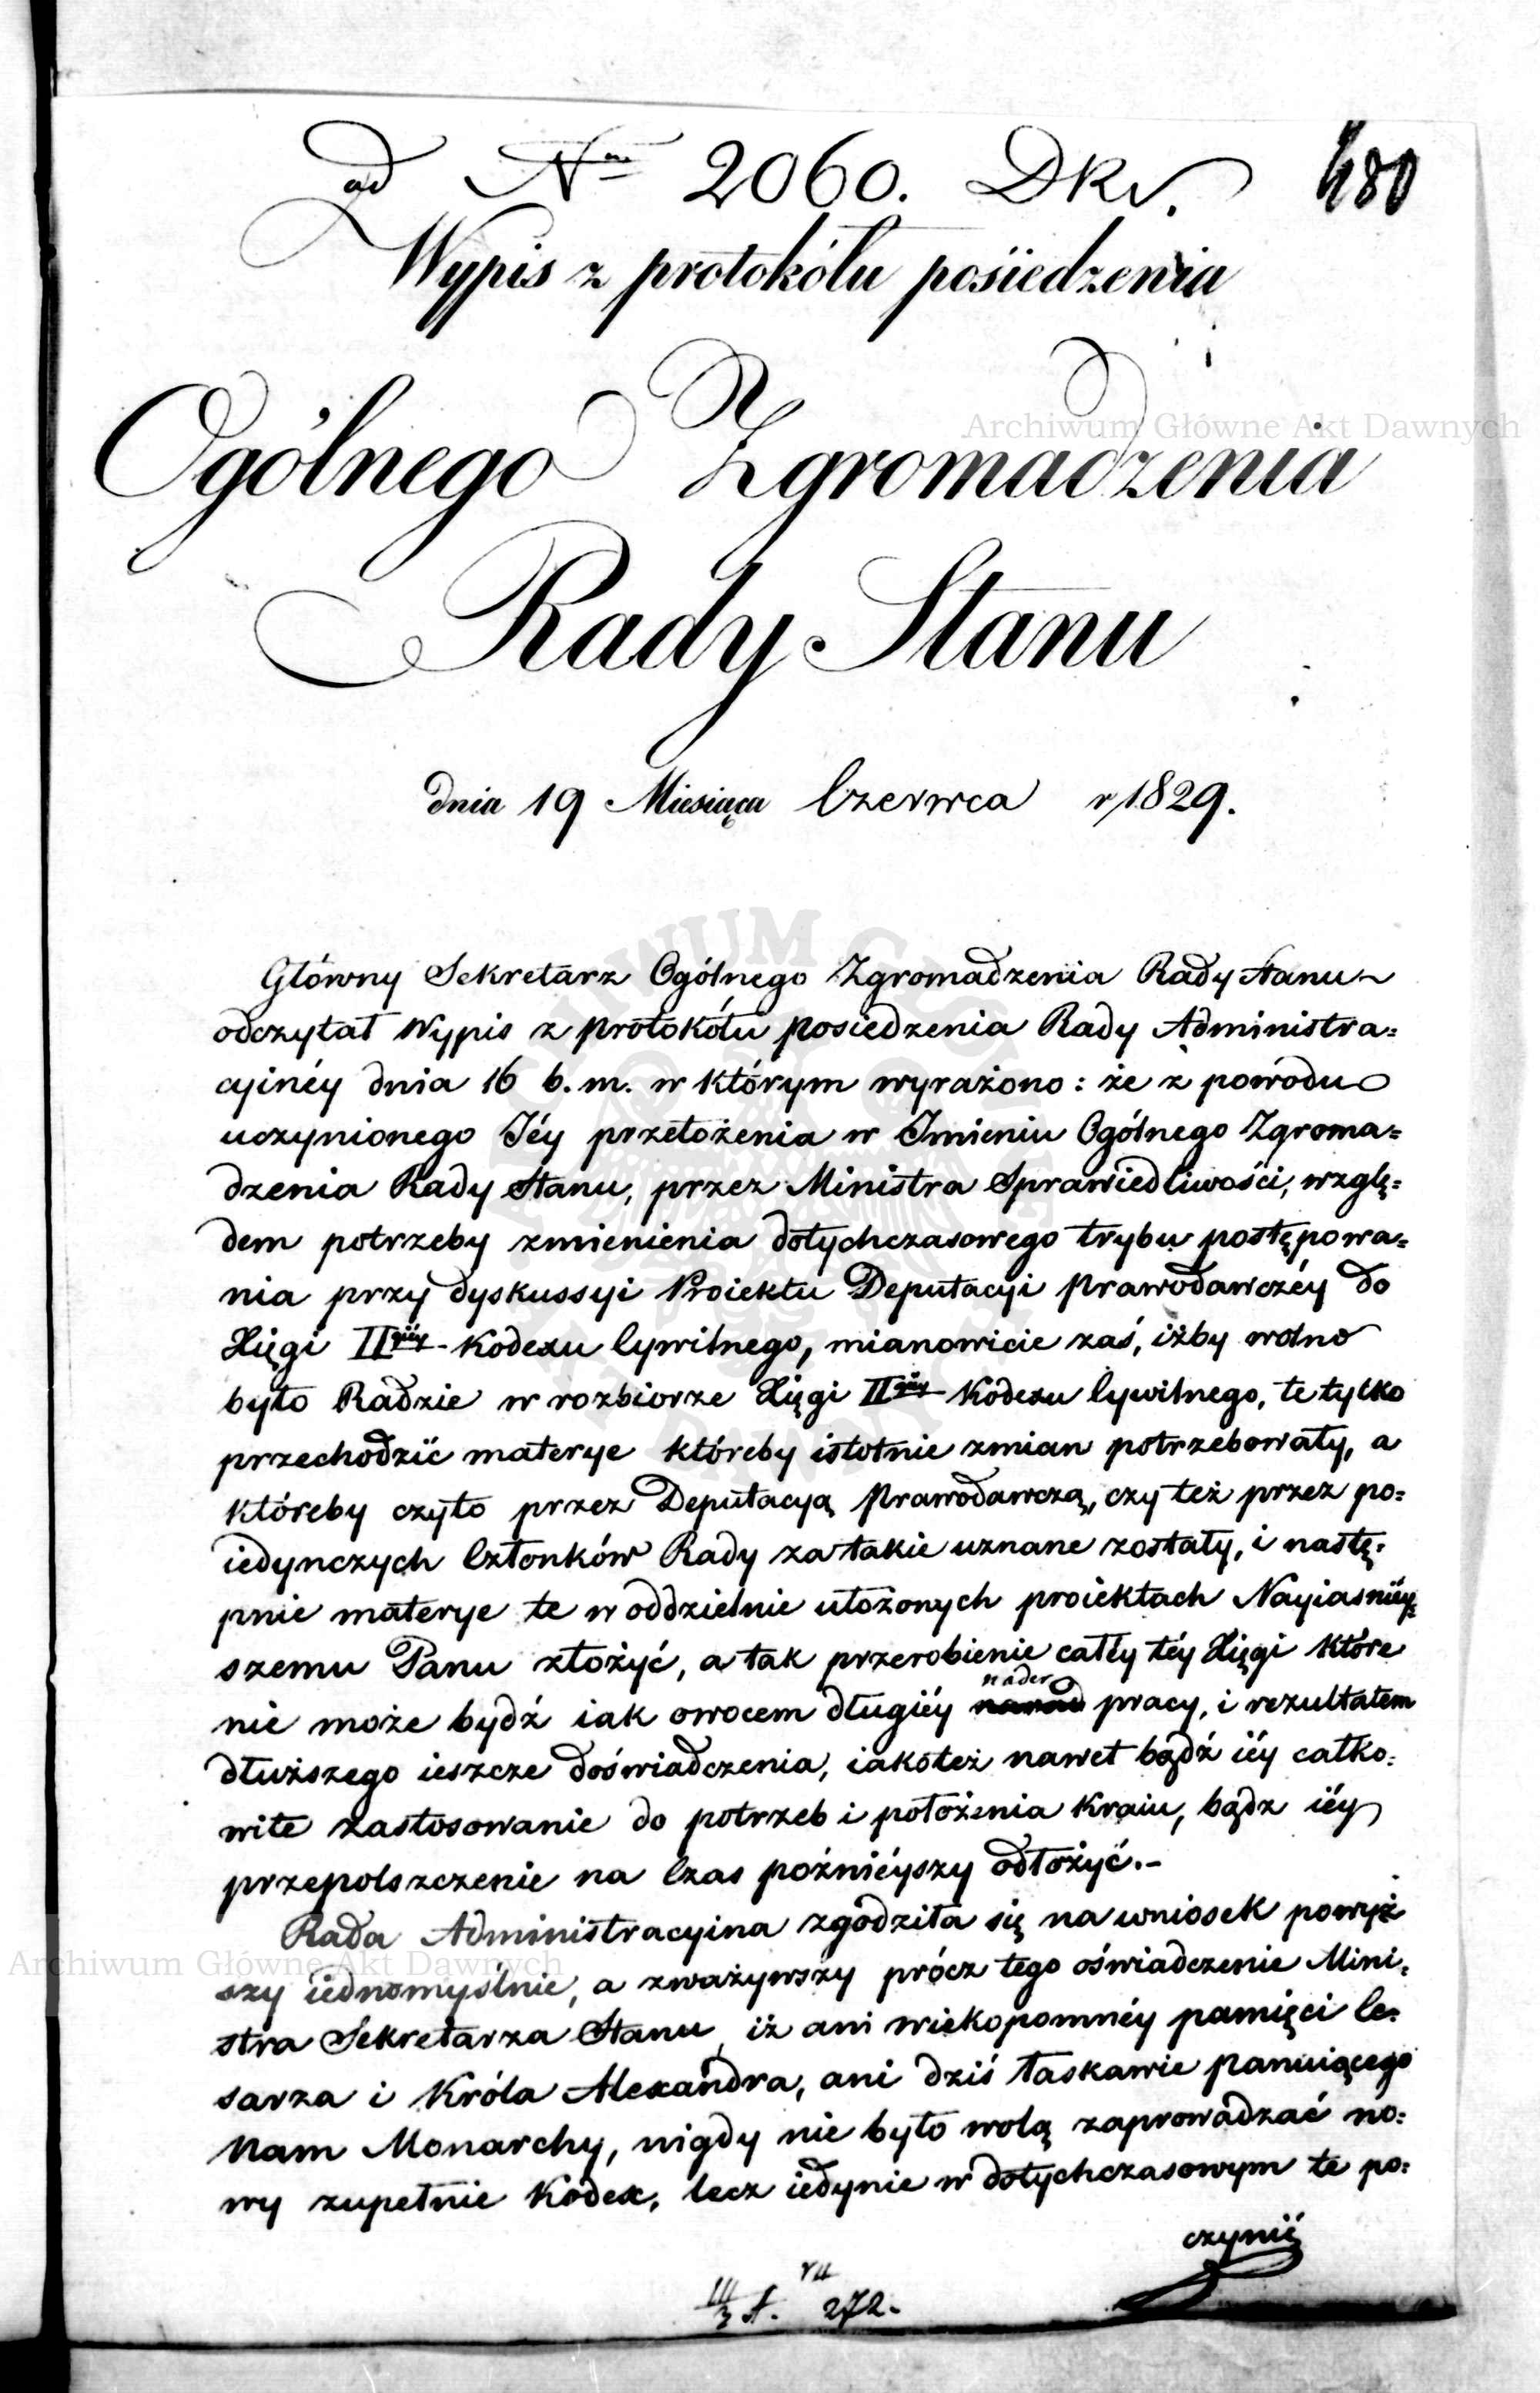 ad Nrm 2060. DKr.
480
Wypis z protokółu posiedzenia
Ogólnego Zgromadzenia
Rady Stanu
dnia 19 Miesiąca Czerwca r 1829.
Główny Sekretarz Ogólnego Zgromadzenia Rady Stanu
odczytał Wypis z protokółu posiedzenia Rady Administra=
cyinéy dnia 16 b. m. w którym wyrażono: że z powodu
uczynionego Jéy przełożenia w Jmieniu Ogólnego Zgroma=
dzenia Rady Stanu, przez Ministra Sprawiedliwości, wzglę=
dem potrzeby zmienienia dotychczasowego trybu postępowa=
nia przy dyskussyi Proiektu Deputacyi Prawodawczéy do
Xięgi IIgiéy Kodexu Cywilnego, mianowicie zaś, iżby wolno
było Radzie w rozbiorze Xięgi IIgiéy Kodexu Cywilnego, te tylko
przechodzić materye któreby istotnie zmian potrzebowały, a
któreby czyto przez Deputacyą Prawodawczą, czy też przez po=
iedynczych Członków Rady za takie uznane zostały, i nastę=
pnie materye te w oddzielnie ułożonych proiektach Nayiaśniéy=
szemu Panu złożyć, a tak przerobienie całéy téy Xięgi które
nader
nie może bydź iak owocem długiéy pracy, i rezultatem
dłuższego ieszcze doświadczenia, iakoteż nawet bądź iéy całko=
wite zastosowanie do potrzeb i położenia Kraiu, bądz iéy
przepolszczenie na Czas poźniéyszy odłożyć.-
Rada Administracyina zgodziła się na wniosek powyż
szy iednomyślnie, a zważywszy prócz tego oświadczenie Mini=
stra Sekretarza Stanu, iż ani wiekopomnéy pamięci Ce=
sarza i Króla Alexandra, ani dziś łaskawie panuiącego
Nam Monarchy, nigdy nie było wolą zaprowadzać no=
wy zupełnie Kodex, lecz iedynie w dotychczasowym te po=
czynić
VII
III/3 A. 272.
Archiwum Główne Akt Dawnych
Archiwum Główne Akt Dawnych